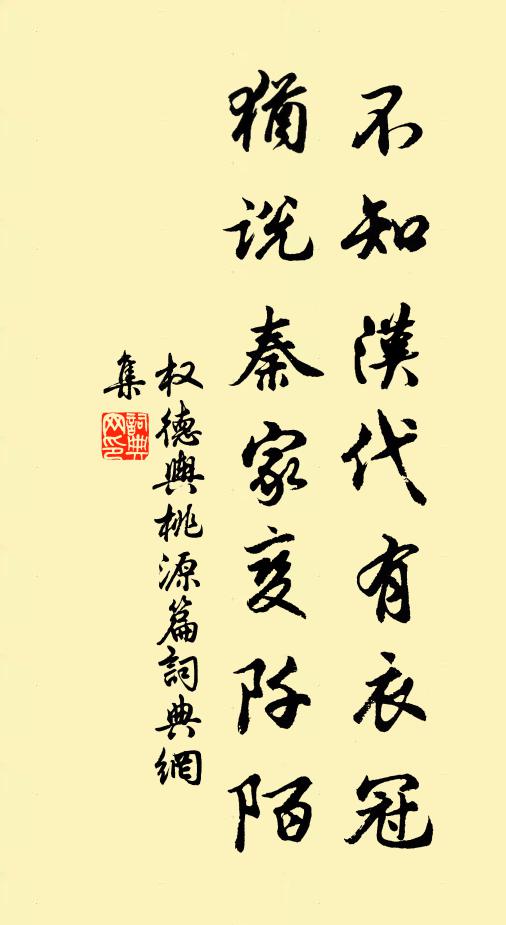 不知漢代有衣冠
猶說秦家变阡陌
权德輿桃源篇詞典網
集
詞典网印